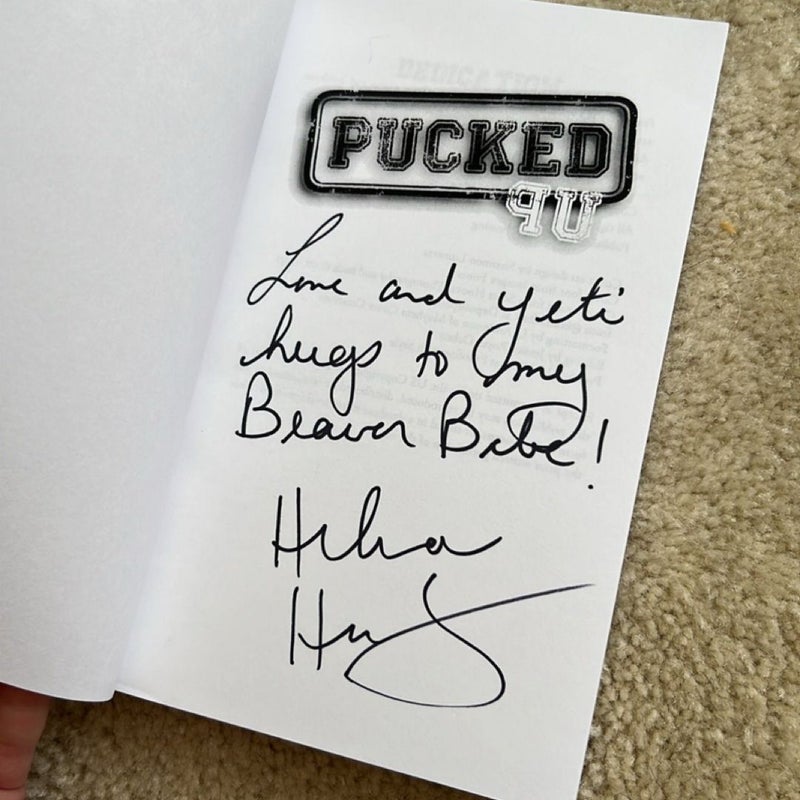 PUCKED
UP
Love and yeti
hugs to my
Beaver Babe!
Helena
Hunting